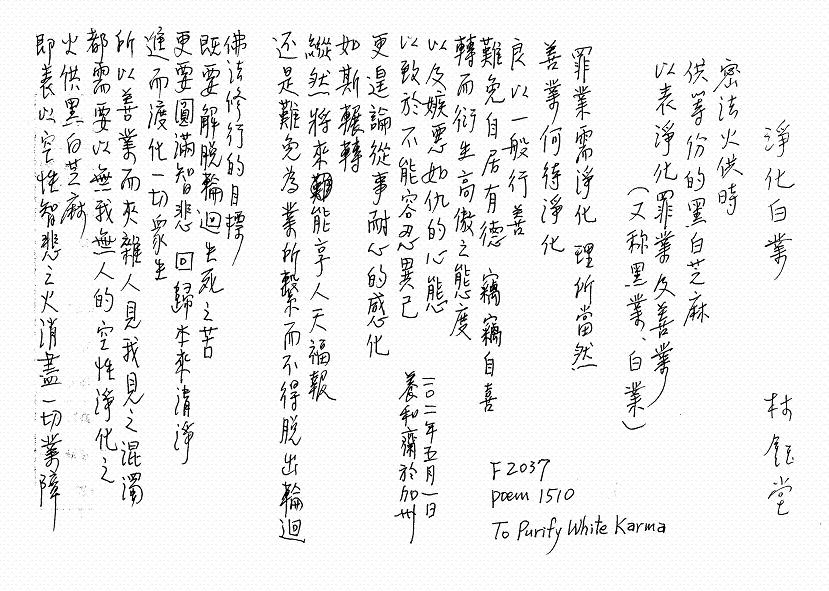 淨化白業 林鈺堂
密法火供時
供等份的黑白芝麻
以表淨化罪業及善業
(又称黑業、白業)
罪業需淨化 理所當然
善業何待淨化
良以一般行善
難免自居有德 竊竊自喜
轉而衍生高傲之態度
以及嫉惡如仇的心態
以致於不能容忍異己
更遑論從事耐心的感化
如斯輾轉
縱然將來能享人天福報
还是難免為業所繫而不得脫出輪迴
佛法修行的目標
既要解脫輪迴生死之苦
更要圓滿智悲 回歸本來清淨
進而渡化一切眾生
所以善業而夾雜人見我見之混濁
都需要以無我無人的空性淨化之
火供黑白芝麻
即表以空性智悲之火消盡一切業障
二〇一二年五月一日
養和齋於加州
F2037
poem 1510
To Purify White Karma